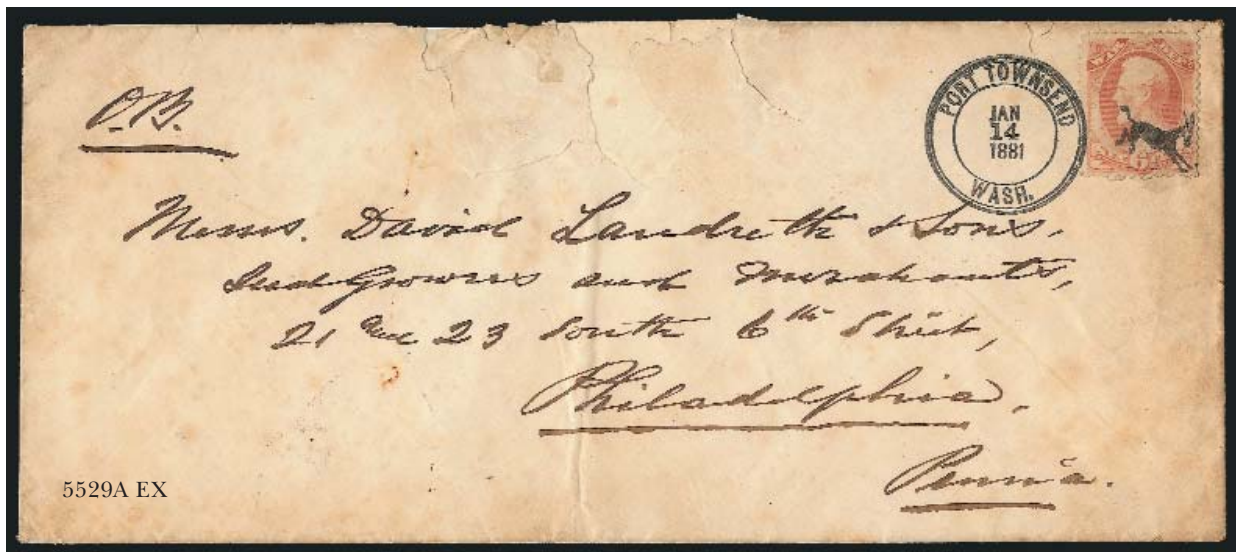 O.B.
PORT TOWNSEND
JAN
14
1881
WASH.
Messrs. David Landreth & Sons,
Seed Growers and Merchants,
21 and 23 South 6th Street,
Philadelphia,
Penn'a.
5529A EX